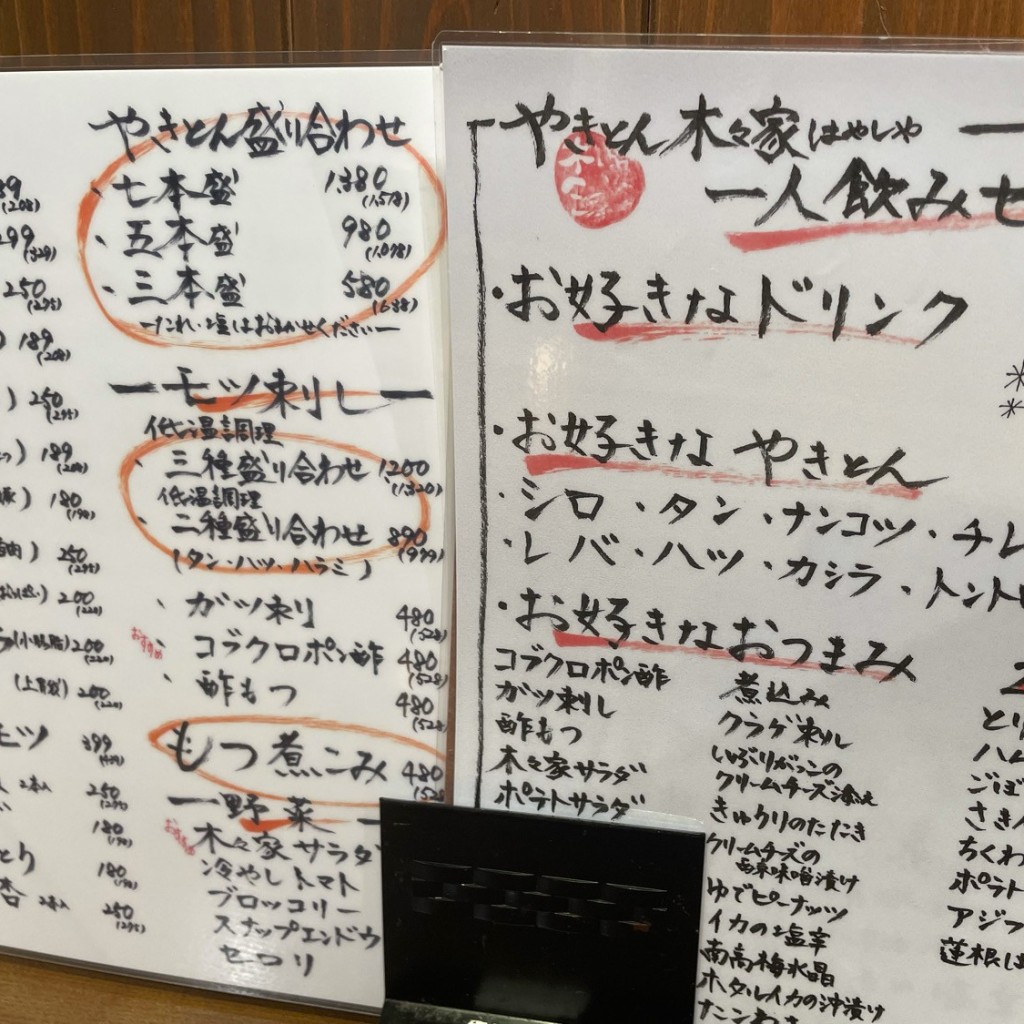 やきとん盛り合わせ
・七本盛 1,380
(1,518)
・五本盛 980
(1,078)
・三本盛 580
(638)
ーたれ・塩はおまかせくださいー
ーモツ刺しー
低温調理
・三種盛り合わせ 1200
(1,320)
低温調理
・二種盛り合わせ 890
(979)
(タン・ハツ・ハラミ)
・ガツ刺し 480
(528)
おすすめ
・コブクロポン酢 480
(528)
・酢もつ 480
(528)
もつ煮こみ 480
ー野菜ー
おすすめ
木々家サラダ
冷やしトマト
ブロッコリー
スナップエンドウ
セロリ
189
(208)
250
(275)
189
(208)
250
(275)
189
(208)
180
(198)
250
(275)
200
(220)
(小腸脂) 200
(220)
200
(220)
モツ 399
2本入 250
(275)
180
180
2本入 250
(275)
やきとん 木々家 はやしや
一人飲みセ
・お好きなドリンク
・お好きなやきとん
・シロ・タン・ナンコツ・チレ
・レバ・ハツ・カシラ・トント
・お好きなおつまみ
コブクロポン酢
ガツ刺し
酢もつ
木々家サラダ
ポテトサラダ
煮込み
クラゲ刺し
いぶりがっこの
クリームチーズ添え
きゅうりのたたき
クリームチーズの
西京味噌漬け
ゆでピーナッツ
イカの塩辛
南高梅水晶
ホタルイカの沖漬け
たこわさ
とり
ハム
ごぼ
さき
ちくわ
ポテト
アジフ
蓮根は